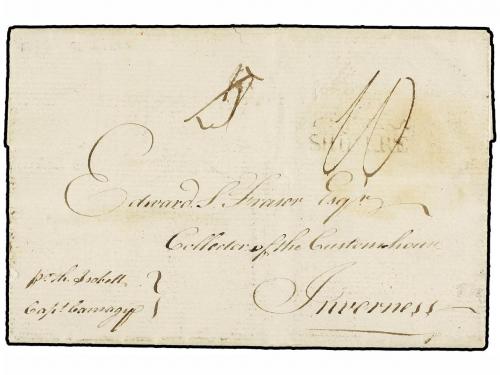 10
Edward S. Fraser Esqr
Collector of the Customhouse
Inverness
pr the Isobell
Capt. Gamage